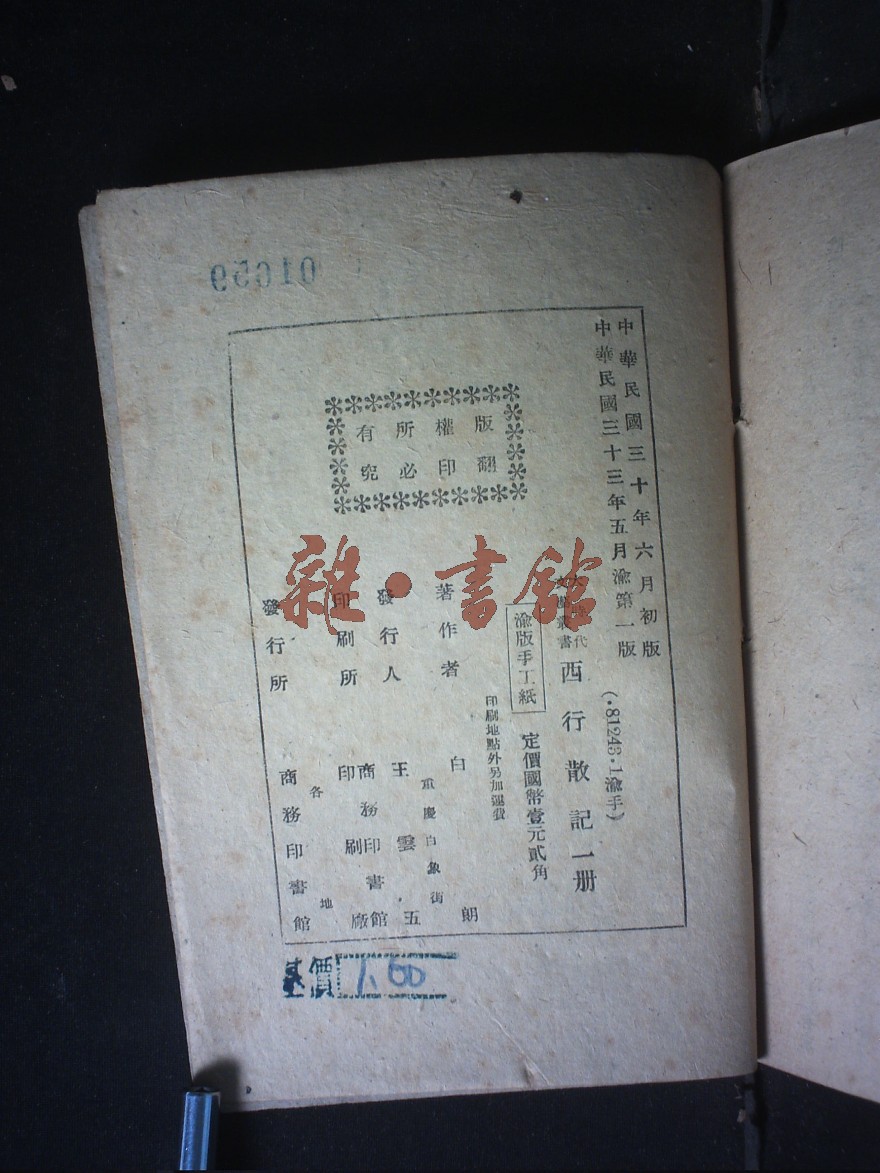 中華民國三十年六月初版
中華民國三十三年五月渝第一版
(·81243·1渝手)
西行散記一册
渝版手工紙
定價國幣壹元貳角
印刷地點外另加運費
著作者 白朗
發行人 王雲五
重慶白象街
印刷所 商務印書館印刷廠
發行所 各地商務印書館
版權所有
翻印必究
雜·書館
01659
基價 1.60